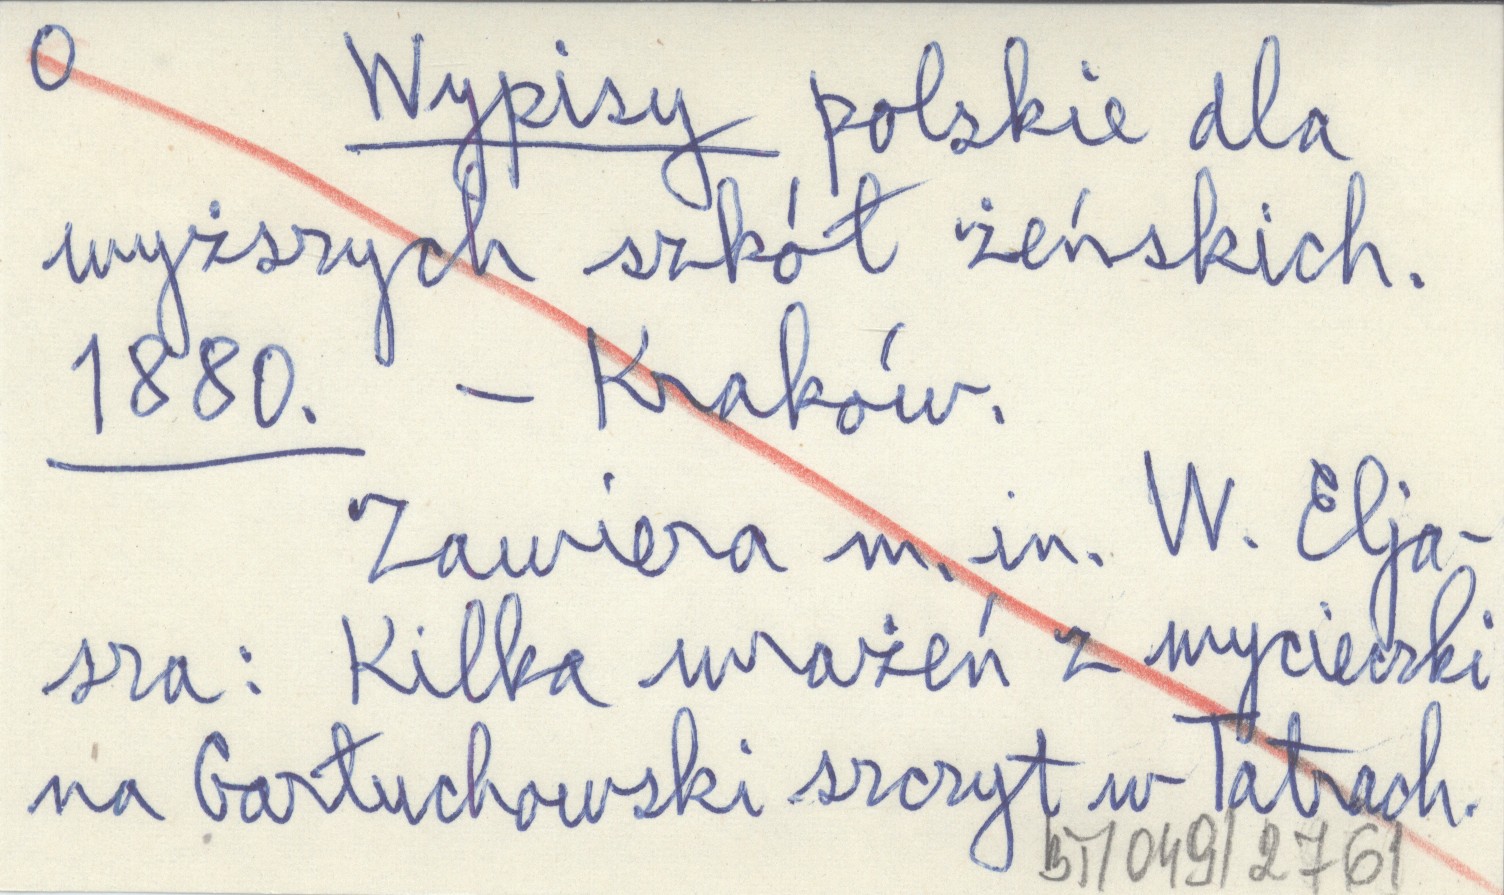 O Wypisy polskie dla
wyższych szkół żeńskich.
1880. – Kraków.
Zawiera m. in. W. Elja-
sza: Kilka wrażeń z wycieczki
na Garłuchowski szczyt w Tatrach.
BT/049/2761